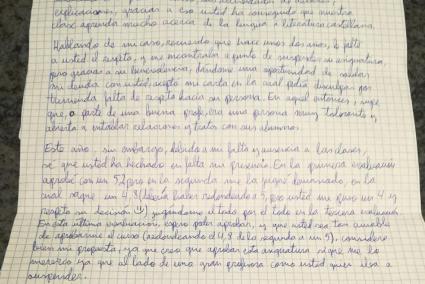 explicaciones, gracias a eso usted ha conseguido que nuestra
clase aprenda mucho acerca de la lengua y literatura castellana.
Hablando de mi caso, recuerdo que hace unos dos años, le falté
a usted el respeto, y me encontraba a punto de suspender su asignatura,
pero gracias a su benevolencia, dándome una oportunidad de saldar
mi deuda con usted, aceptó mi carta en la cual pedía disculpas por
tremenda falta de respeto hacia su persona. En aquel entonces, supe
que, a parte de una buena profe, era una persona muy tolerante y
abierta a entablar relaciones y tratos con sus alumnos.
Este año, sin embargo, debido a mi falta y ausencia a las clases,
sé que usted ha hechado en falta mi presencia. En la primera evaluación
aprobé con un 5,2 pero en la segunda me la jugué demasiado, en la
cual saqué un 4,8 (debería haber redondeado a 5, pero usted me puso un 4 y
respeto su decisión) jugándome el todo por el todo en la tercera evaluación.
En esta última evaluación, espero poder aprobar, y que usted sea tan amable
de aprobarme el curso (redondeando el 4,8 de la segunda a un 5), considere
bien mi propuesta, ya que creo que aprobar esta asignatura sique me lo
merezco ya que al lado de una gran profesora como usted quien iba a
suspender.